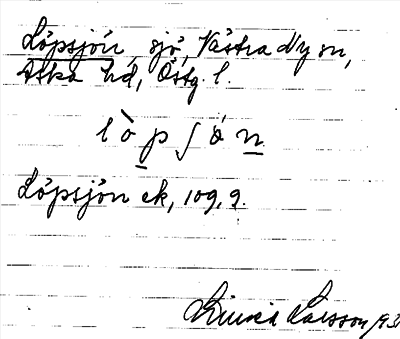 Löpsjön, sjö, Västra Ny sn,
Aska hd, Östg. l.
lòpʃón
Löpsjön ek, 109, 9.
Linnea Larsson 193